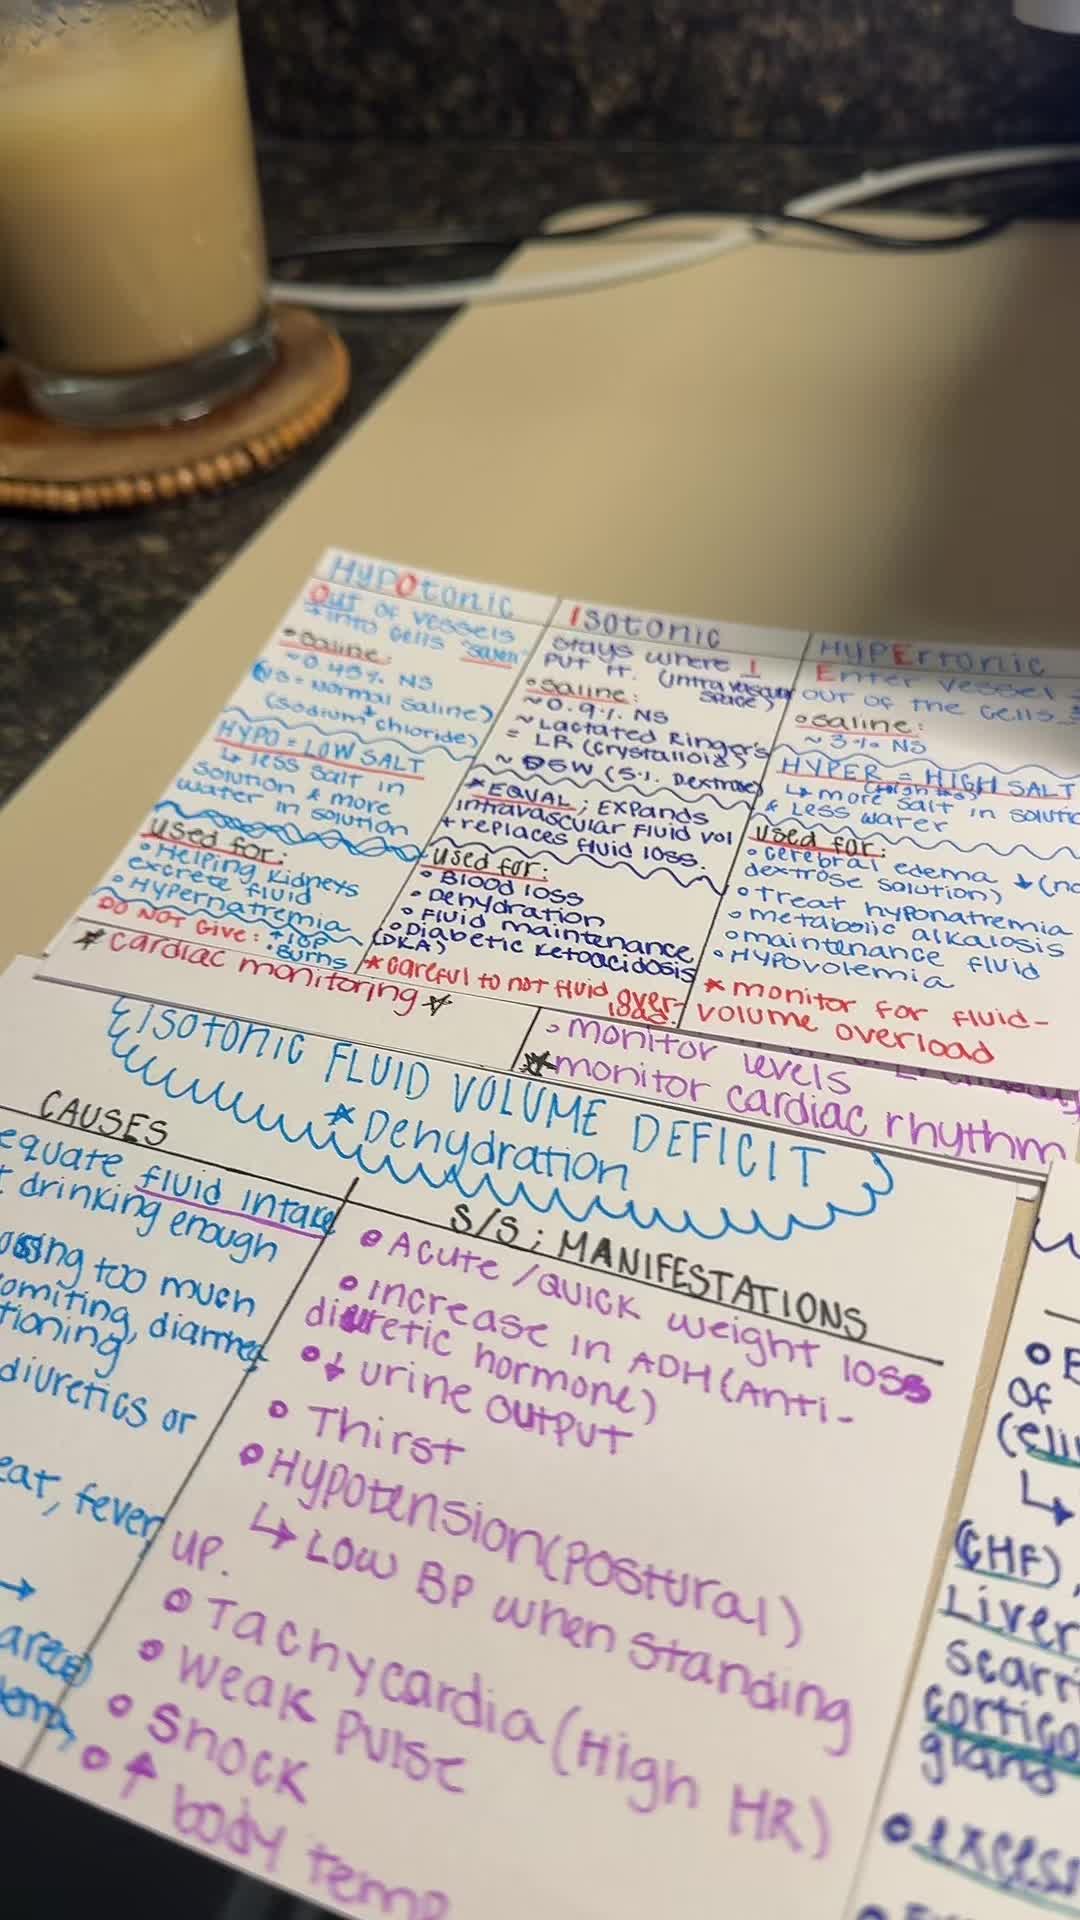 HYPOtonic
Out of vessels
+ into cells "swell"
•Saline:
~0.45% NS
(NS = Normal Saline)
(Sodium + chloride)
HYPO = LOW SALT
↳ less salt in
solution & more
water in solution
used for:
• Helping kidneys
excrete fluid
• Hypernatremia
DO NOT GIVE: ↑ICP
• Burns
*cardiac monitoring*
Isotonic
Stays where I
put it. (intravascular
space)
•Saline:
~0.9% NS
~Lactated Ringer's
= LR (crystalloid)
~ D5W (5% Dextrose)
*EQUAL; EXpands
intravascular fluid vol
+ replaces fluid loss.
used for:
• Blood loss
• Dehydration
• Fluid maintenance
• Diabetic Ketoacidosis
(DKA)
*careful to not fluid over-
load.
HYPErtonic
Enter vessel
out of the cells
•Saline:
~3% NS
HYPER = HIGH SALT
↳ more salt in
& Less water
used for:
• cerebral edema ↓
dextrose solution)
• Treat hyponatremia
• metabolic alkalosis
• maintenance fluid
• Hypovolemia
*monitor for fluid-
volume overload
• monitor levels
*monitor cardiac rhythm
ISOTONIC FLUID VOLUME DEFICIT
* Dehydration
CAUSES
fluid intake
drinking enough
too much
diarrhea
diuretics or
fever
S/S; MANIFESTATIONS
• Acute/Quick weight loss
• increase in ADH (Anti-
diuretic hormone)
• ↓ urine output
• Thirst
• Hypotension (Postural)
↳ Low BP when standing
up.
• Tachycardia (High HR)
• weak pulse
• Shock
• ↑ body temp
of
(CHF),
Liver
gland